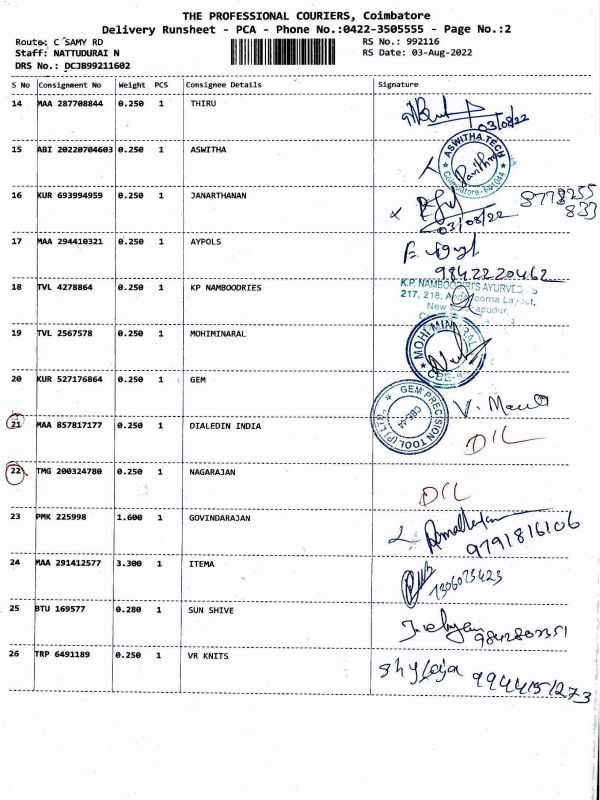 THE PROFESSIONAL COURIERS, Coimbatore
Delivery Runsheet - PCA - Phone No.:0422-3505555 - Page No.:2
Route: C SAMY RD
Staff: NATTUDURAI N
DRS No.: DCJB99211602
RS No.: 992116
RS Date: 03-Aug-2022
S No Consignment No Weight PCS Consignee Details Signature
14 MAA 287708844 0.250 1 THIRU
03/08/22
15 ABI 20220704603 0.250 1 ASWITHA
ASWITHA TECH
Coimbatore-641044
16 KUR 693994959 0.250 1 JANARTHANAN
03/08/22
8778255
833
17 MAA 294410321 0.250 1 AYPOLS
9842220462
18 TVL 4278864 0.250 1 KP NAMBOODRIES
K.P. NAMBOODIRI'S AYURVED
217, 218,
19 TVL 2567578 0.250 1 MOHIMINARAL
MOHI MINARAL
CBE-4
20 KUR 527176864 0.250 1 GEM
GEM PRECISION TOOL (P) LTD
CBE-44
V. Mano
21 MAA 857817177 0.250 1 DIALEDIN INDIA
D/L
22 TMG 200324780 0.250 1 NAGARAJAN
D/L
23 PMK 225998 1.600 1 GOVINDARAJAN
9791816106
24 MAA 291412577 3.300 1 ITEMA
7306075423
25 BTU 169577 0.280 1 SUN SHIVE
9842803351
26 TRP 6491189 0.250 1 VR KNITS
Shylaja 9944151273